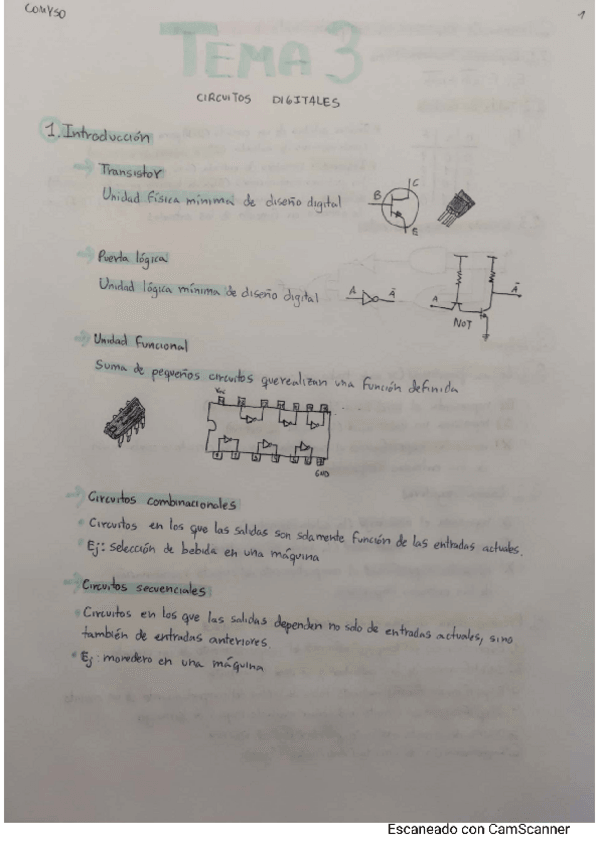 COMYSO
1
TEMA 3
CIRCUITOS DIGITALES
1. Introducción
→ Transistor
Unidad física mínima de diseño digital
B
C
E
→ Puerta lógica
Unidad lógica mínima de diseño digital
A
Ā
A
Ā
NOT
→ Unidad Funcional
Suma de pequeños circuitos que realizan una función definida
Vcc
GND
→ Circuitos combinacionales
• Circuitos en los que las salidas son solamente función de las entradas actuales.
• Ej: Selección de bebida en una máquina
→ Circuitos secuenciales
• Circuitos en los que las salidas dependen no solo de entradas actuales, sino
también de entradas anteriores.
• Ej: monedero en una máquina
Escaneado con CamScanner